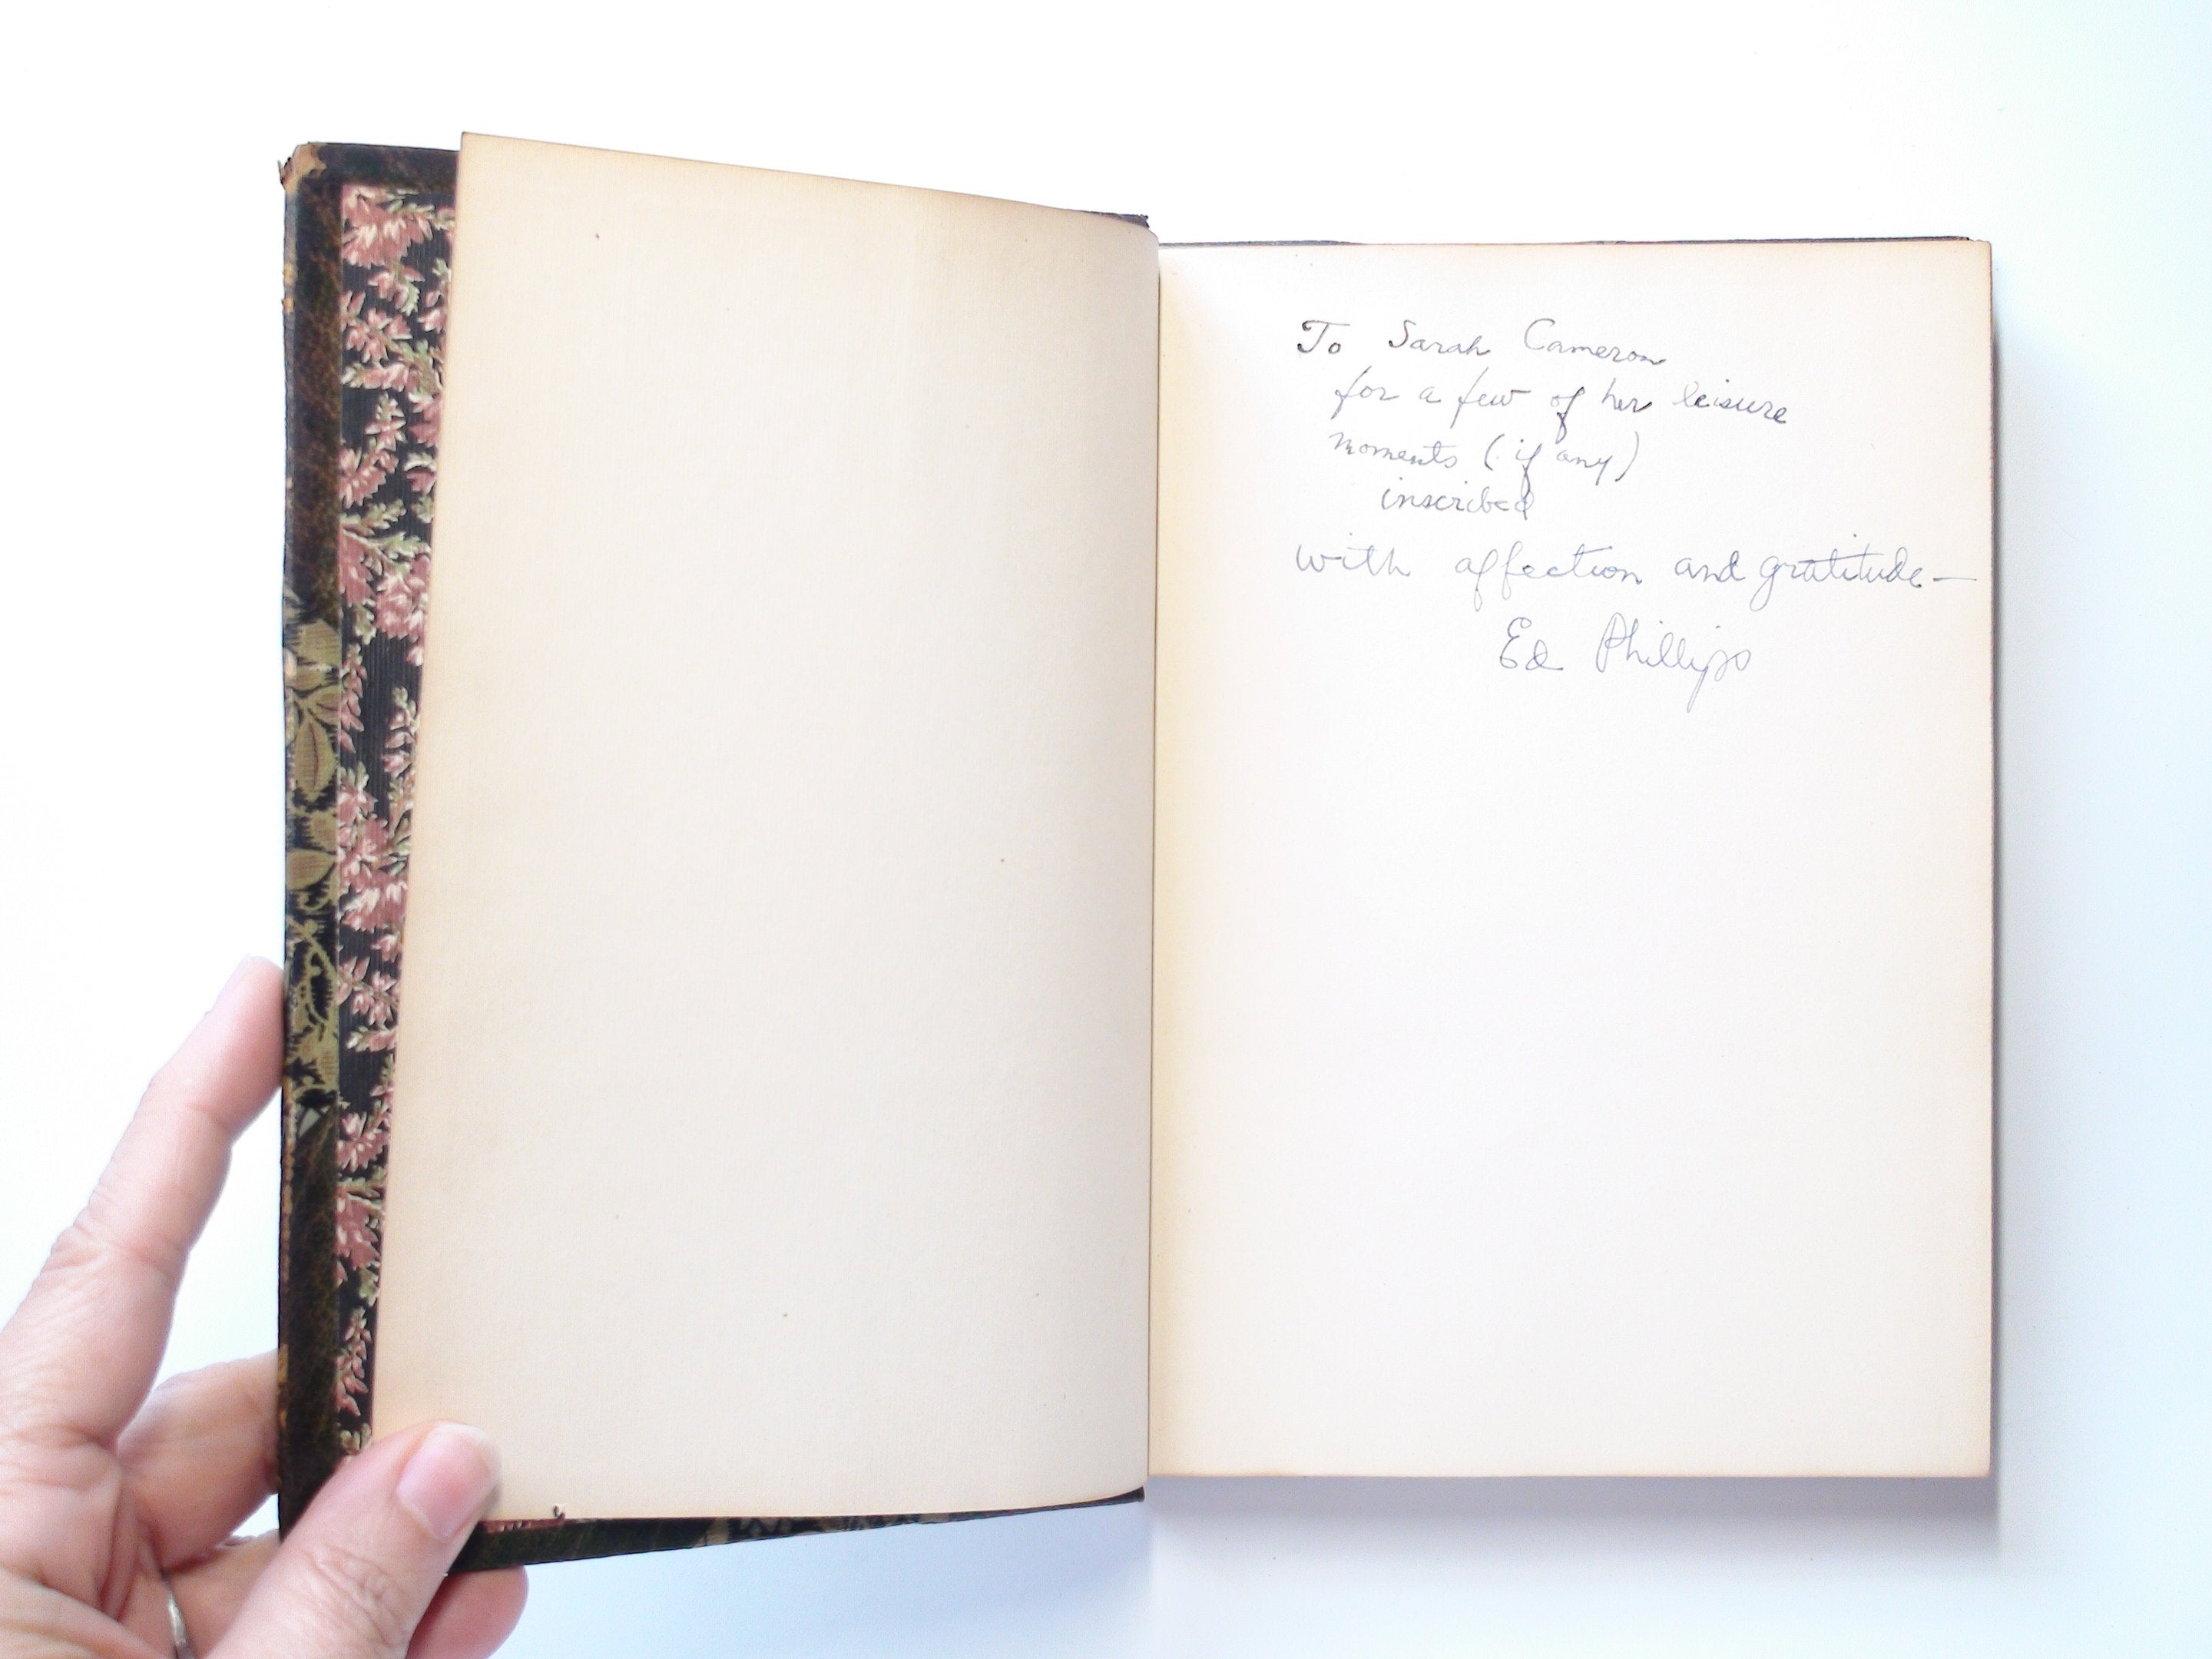 To Sarah Cameron
for a few of her leisure
moments (if any)
inscribed
with affection and gratitude—
Ed Phillips